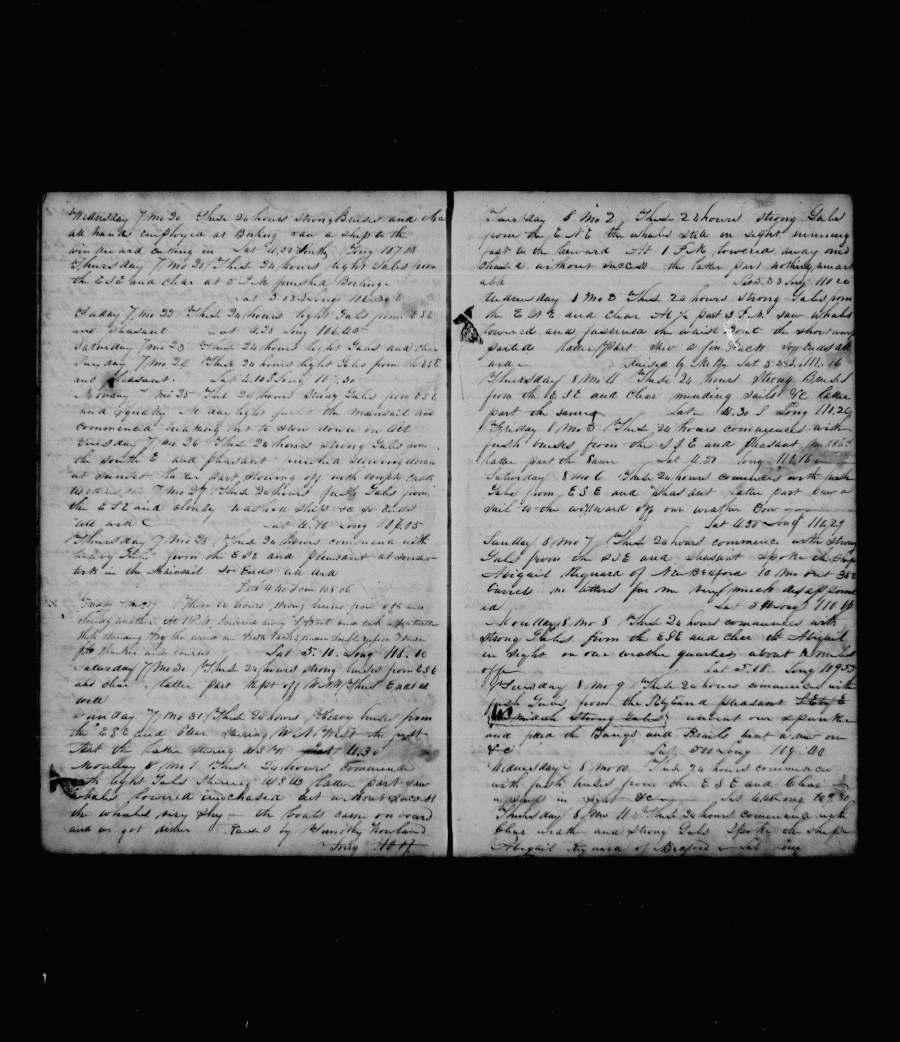 Wednesday 7 Mo 20 These 24 hours strong Breeses and clear
all hands employed at Boiling saw a ship to the
windward cutting in Lat 4.20 South Long 107.13
Thursday 7 Mo 21 These 24 hours light Gales from
the ESE and clear at 5 P.M finished Boiling
Lat 3.52 Long 106.
Friday 7 Mo 22 These 24 hours light Gales from ESE
and pleasant Lat 4.38 Long 106.40
Saturday 7 Mo 23 These 24 hours light Gales and clear
Sunday 7 Mo 24 These 24 hours light Gales from the ESE
and pleasant. Lat 4.10 S Long 107.30
Monday 7 Mo 25 These 24 hours strong Gales from ESE
and squaly At day light furled the mainsail and
commenced making out to stow down on Oil
Tuesday 7 Mo 26 These 24 hours strong Gales from
the south E and pleasant finished stowing down
at sunset latter part stowing off with empty cask
7 Mo 27 These 24 hours fresh Gales from
the ESE and cloudy washed ship &c so Ends
all well Lat 4. Long 107.15
Thursday 7 Mo 28 These 24 hours commence with
heavy Gales from the ESE and pleasant at sunset
took in the Mainsail So Ends all well
Lat 4.40 Lon 108.06
Friday 7 mo 29 These 24 hours strong breeses from ESE and
cloudy weather At 1 P.M. lowered away
Lat 5.10 Long 108.16
Saturday 7 Mo 30 These 24 hours strong breeses from ESE
and clear latter part kept off WNW thus Ends all
well
Sunday 7 Mo 31 These 24 hours heavy breeses from
the ESE and Clear stearing W N West the first
Part the latter stearing W S W Lat 4.30
Monday 8 Mo 1 These 24 hours commence
with light Gales stearing WSW latter part saw
whales lowered and chased but without success
the whales very shy the boats came on board
and we got dinner Raised by Timothy
Long
Tuesday 8 Mo 2 These 24 hours strong Gales
from the ENE the whales still in sight running
fast to the leeward At 1 P.M. lowered away and
chased without success the latter part nothing remark
able Lat 5.33 Long 110.20
Wednesday 8 Mo 3 These 24 hours strong Gales from
the ENE and clear At ½ past 3 P.M. saw whales
lowered and fastened the waist Boat the short warp
parted latter Part saw a fin Back So Ends all
well Raised by Lat 5.33 L 111.16
Thursday 8 Mo 4 These 24 hours strong Breeses
from the ESE and clear mending sails &c latter
part the same Lat 4.30 S Long 111.29
Friday 8 Mo 5 These 24 hours commences with
fresh breeses from the SSE and pleasant
latter part the same Lat 4.50 Long 111.16
Saturday 8 Mo 6 These 24 hours commences with fresh
Gales from ESE and pleasant latter part saw a
sail to the windward off our weather Bow
Lat 4.50 Long 111.29
Sunday 8 Mo 7 These 24 hours commence with strong
Gales from the SSE and pleasant spoke the ship
Abigail Reynard of New Bedford 10 Mo out 350
barrels no letters for me very much disappoint
ed Lat 5 Long 110.40
Monday 8 Mo 8 These 24 hours commences with
strong Gales from the ESE and clear the Abigail
in sight on our weather quarter about miles
off Lat 5.18 Long 109.53
Tuesday 8 Mo 9 These 24 hours comences with
fresh Gales from the and pleasant
strong Gales unbent our spanker
and
&c Lat 5.00 Long 109.00
Wednesday 8 Mo 10 These 24 hours commence
with fresh breeses from the ESE and Clear
in sight &c Lat 4.46 Long
Thursday 8 Mo 11 These 24 hours commence with
Clear weather and strong Gales Spoke the ship
Abigail Reynard of Bedford Lat Long